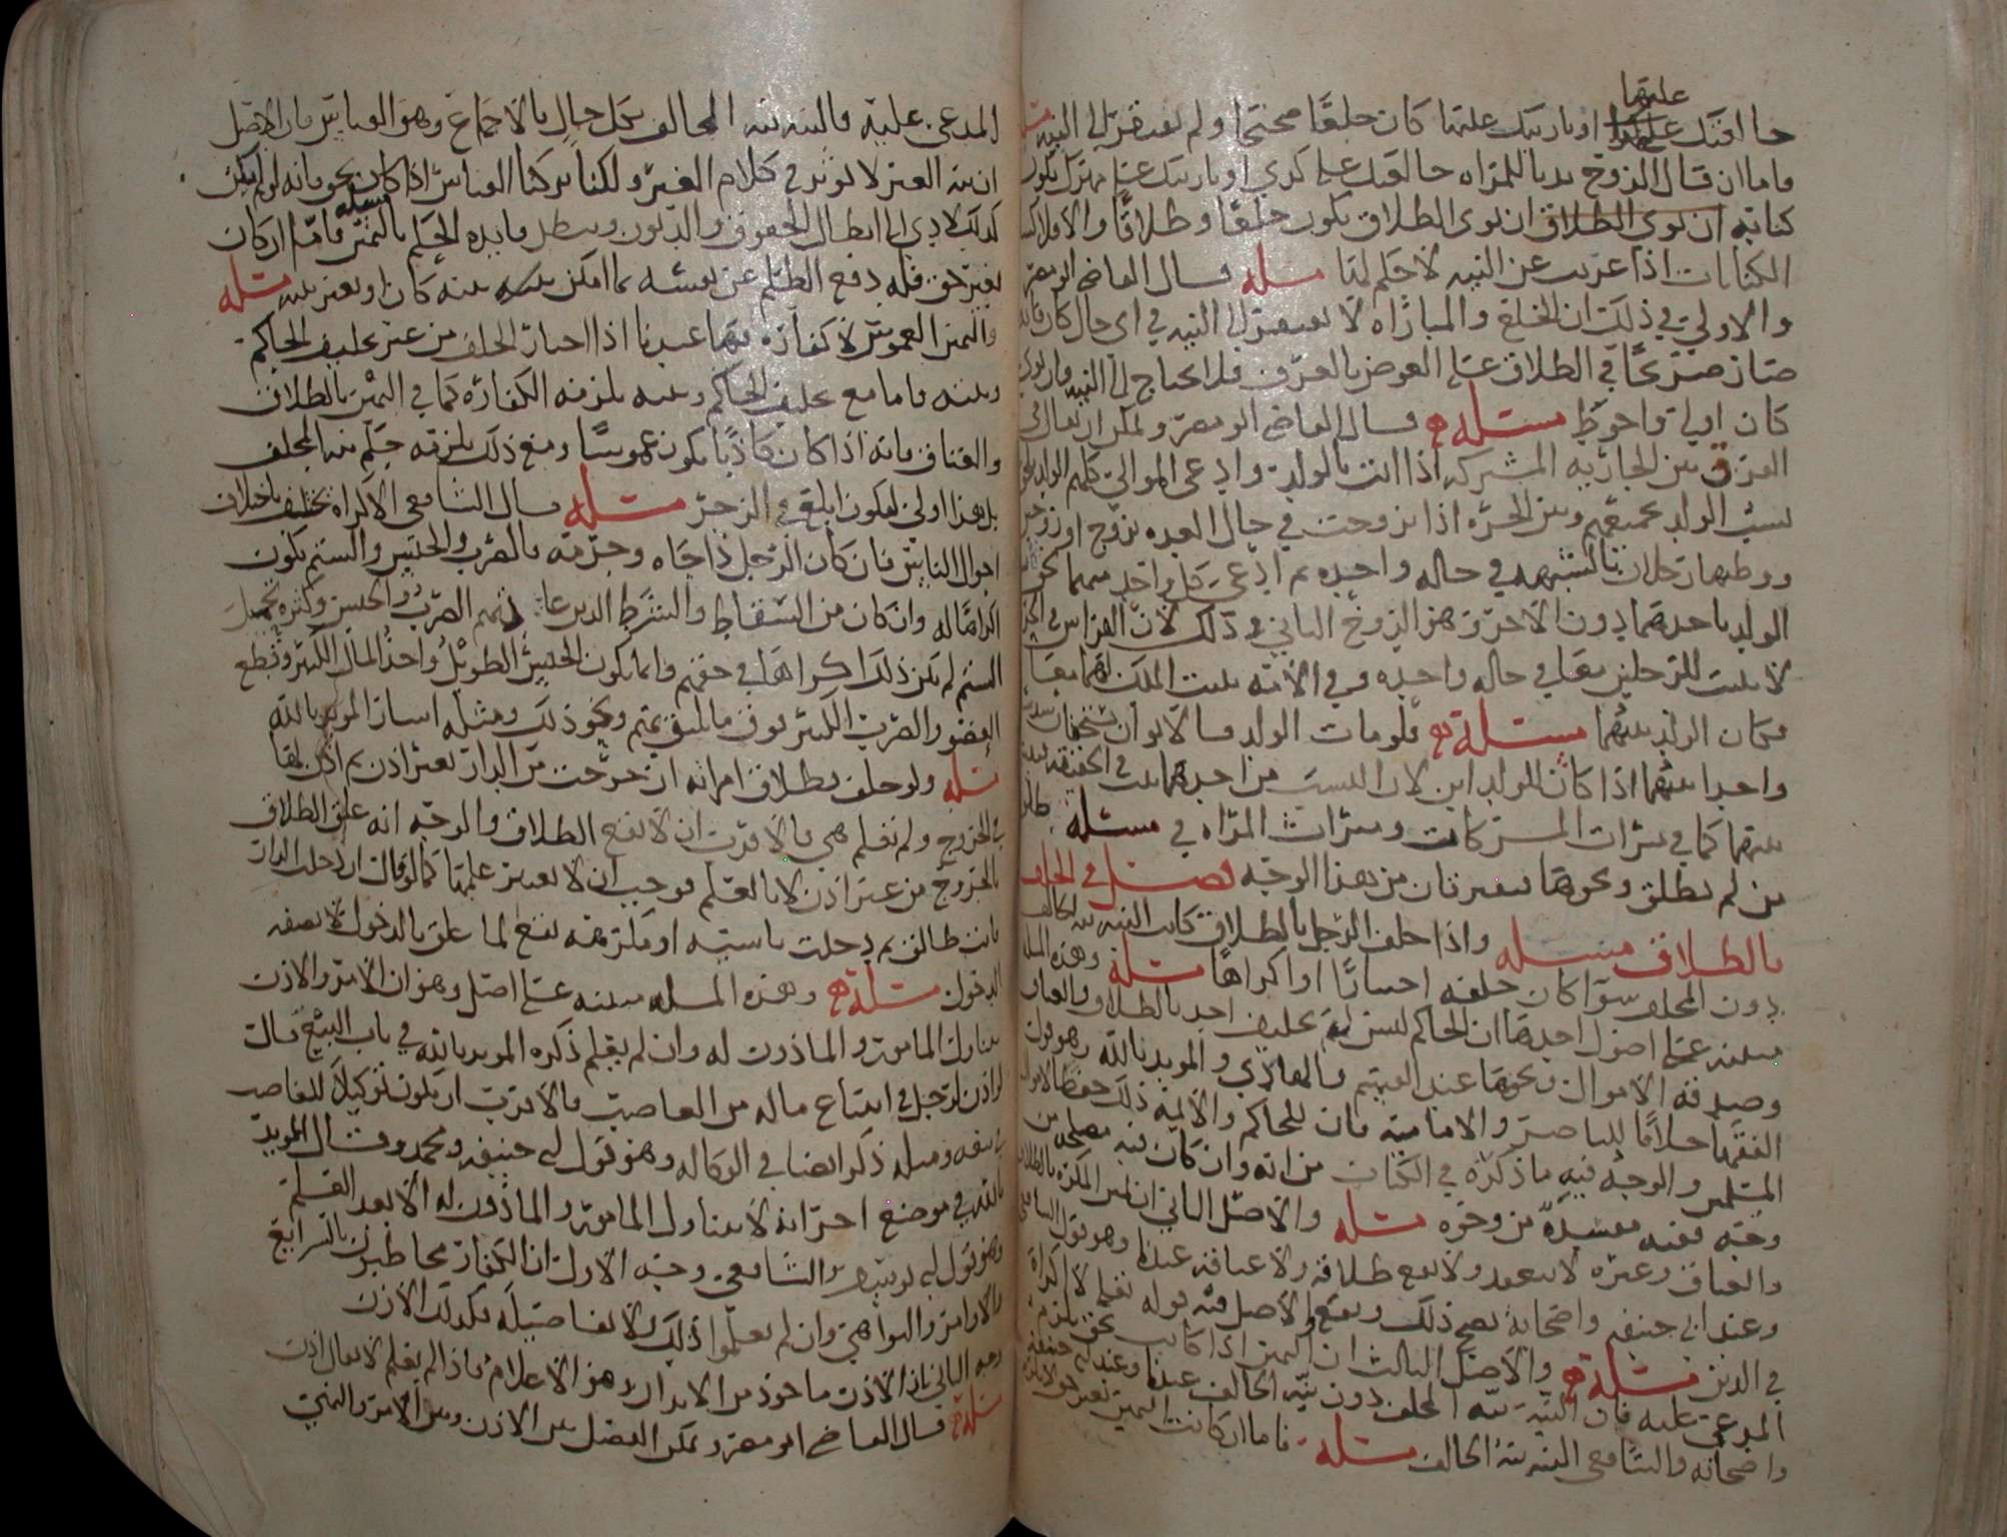 عليها
خالعتك عليها او بارتك عليها كان خلعًا صحيحًا ولم يفتقر الى النية
فاما ان قال الزوج بديا للمراه خالعتك على كذي او بارتك على مهرك يكون
كنايه ان نوى الطلاق يكون خلعًا وطلاقًا والا فلا لان
الكنايات اذا عريت عن النيه لا حكم لها مسله قال القاضي ابو مضر
والاولى في ذلك ان الخلع والمباراه لا يفتقر الى النيه في اي حال كان لانه
صار صريحًا في الطلاق على العوض بالعرف فلا يحتاج الى النيه وان نوى
كان اولى واحوط مسئله قال القاضي ابو مضر ويمكن ان يقال في
الفرق بين الجاريه المشتركه اذا اتت بالولد وادعى الموالي كلهم الولد
نسب الولد بجميعهم وبين الحره اذا تزوجت في حال العده بزوج اخر
ووطيها رجلان بالشبهه في حاله واحده ثم ادعى كل واحد منهما
الولد باحدهما دون الاخر وهو الزوج الثاني في ذلك لان الفراش في
لا يثبت للرجلين معا في حاله واحده وفي الامه يثبت الملك لهما معا
فكان الولد بينهما مسئله فلو مات الولد فالابوان يستحقان
واحدا بينهما اذا كان للولد ابن لان النسب من احدهما يثبت في الحقيقه
بينهما كما في ميراث المشركات وميراث المراه في مسئله
من لم تطلق ونحوها يفترقان من هذا الوجه فصل في الحلف
بالطلاق مسئله واذا حلف الرجل بالطلاق كانت النيه نية الحالف
دون المحلف سوآ كان حلفه اختيارًا او اكراهًا مسله وهذه المسله
مبنيه على اصول احدها ان الحاكم ليس له تحليف احد بالطلاق والعتاق
وصدقه الاموال ونحوها عند القسم والهادي والمويد بالله وهو قول
الفقها خلافًا للناصر والاماميه فان للحاكم والايمه ذلك حفظا لاموال
المسلمين والوجه فيه ما ذكره في الكتاب من انه وان كان فيه مصلحه من
وجه ففيه مفسدة من وجوه مسله والاصل الثاني ان يمين المكره بالطلاق
والعتاق وغيره لا ينعقد ولا يقع طلاقه ولا عتاقه عندنا وهو قول الشافعي
وعند ابي حنيفه واصحابه يصح ذلك ويقع والاصل فيه قوله تعلى لا اكراه
في الدين مسئله والاصل الثالث ان اليمين اذا كانت بحق يلزم
المدعى عليه فان النية نية المحلف دون نية الحالف عندنا وعند ابي حنيفه
واصحابه والشافعي النيه نية الحالف مسئله فاما ان كانت اليمين بغير حق
المدعى عليه فالنيه نيه الحالف بكل حال بالاجماع وهو القياس فان الاصل
ان نيه الغير لا توثر في كلام الغير ولكنا تركنا القياس اذا كان بحق فانه لو لم يكن
كذلك لادى الى ابطال الحقوق والديون ويبطل فايده الحكم باليمين فاما ان كان
بغير حق فله دفع الظلم عن نفسه بما امكن بنيه كان او بغير نيه مسله
واليمين الغموس لا كفارة فيها عندنا اذا اختار الحلف من غير تحليف الحاكم
وبنيه فاما مع تحليف الحاكم وبنيه يلزمه الكفاره كما في اليمين بالطلاق
والعتاق فانه اذا كان كاذبًا يكون غموسًا ومع ذلك يلزمه حكم نيه المحلف
بل هذا اولى ليكون ابلغ في الزجر مسئله قال الشافعي الاكراه يختلف باختلاف
احوال الناس فان كان الرجل ذا جاه وحرمه فالضرب والحبس والشتم يكون
اكراهًا له وان كان من السقاط والشرط الذين عادتهم الضرب والحبس وكثره تحمل
الشتم لم يكن ذلك اكراها في حقهم وانما يكون الحبس الطويل واخذ المال الكثير وقطع
العضو والضرب الكثير فوق ما يليق بهم ونحو ذلك ومثله اشار المويد بالله
مسله ولو حلف بطلاق امراته ان خرجت من الدار بغير اذن ثم اذن لها
في الخروج ولم تعلم هي فالاقرب ان لا يقع الطلاق والوجه انه علق الطلاق
بالخروج من غير اذن لا بالعلم فوجب ان لا يعتبر علمها كما لو قال ان دخلت الدار
فانت طالق ثم دخلت ناسيه او مكرهه يقع لما علق بالدخول لا بصفه
الدخول مسئله وهذه المسله مبنيه على اصل وهو ان الامر والاذن
يتناول المامور والماذون له وان لم يعلم ذكره المويد بالله في باب البيع قال
لو اذن لرجل في ابتياع ماله من الغاصب فالاقرب ان يكون توكيلا للغاصب
في بيعه ومثله ذكر ايضا في الوكاله وهو قول ابي حنيفه ومحمد وقال المويد
بالله في موضع اخر انه لا يتناول المامور والماذون له الا بعد العلم
وهو قول ابي يوسف والشافعي وجه الاول ان الكفار مخاطبون بالشرايع
والاوامر والنواهي وان لم يعلموا ذلك ولا تفاصيله فكذلك الاذن
وجه الثاني ان الاذن ماخوذ من الايذان وهو الاعلام فاذا لم يعلم لا يقال اذن
مسئله قال القاضي ابو مضر ويمكن الفصل بين الاذن وبين الامر والنهي